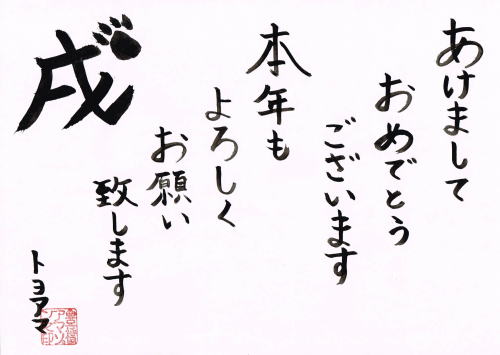 あけまして
おめでとう
ございます
本年も
よろしく
お願い
致します
戌
トヨアマ